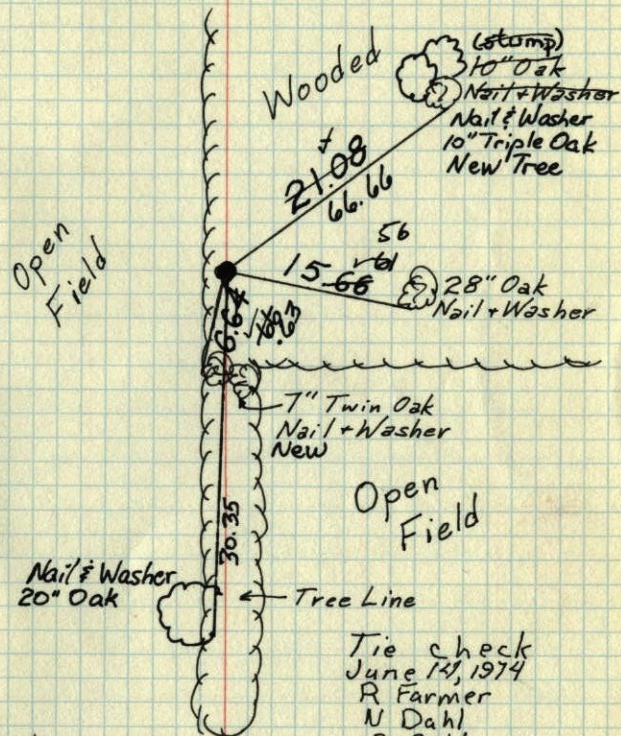 Wooded
(stump)
10" Oak
Nail + Washer
Nail & Washer
10" Triple Oak
New Tree
21.08
66.66
Open
Field
56
61
15.66
28" Oak
Nail + Washer
6.64
.63
7" Twin Oak
Nail + Washer
New
Open
Field
30.35
Nail & Washer
20" Oak
Tree Line
Tie check
June 14, 1974
R Farmer
N Dahl